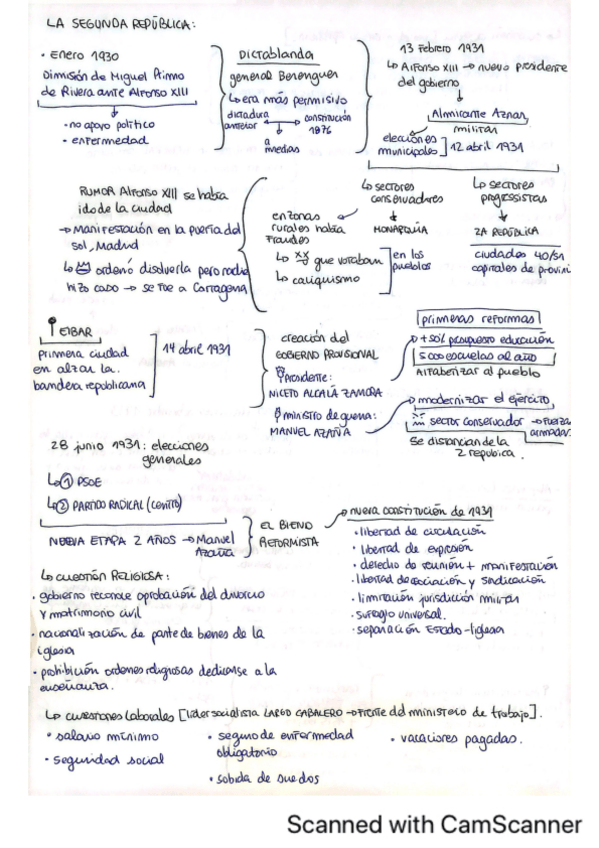 LA SEGUNDA REPÚBLICA:
• Enero 1930
Dimisión de Miguel Primo
de Rivera ante Alfonso XIII
• no apoyo político
• enfermedad
Dictablanda
general Berenguer
↳ era más permisivo
dictadura anterior ← → constitución 1876
a medias
13 Febrero 1931
↳ Alfonso XIII → nuevo presidente
del gobierno
Almirante Aznar
militar
elecciones municipales ] 12 abril 1931
RUMOR Alfonso XIII se había
ido de la ciudad
→ Manifestación en la puerta del
sol, Madrid
↳ ordenó disolverla pero nadie
hizo caso → se fue a Cartagena
↳ sectores
conservadores
MONARQUÍA
en zonas
rurales había
Fraudes
↳ xx que votaban
↳ caciquismo
en los
pueblos
↳ sectores
progresistas
2A REPÚBLICA
ciudades 40/51
capitales de provinci
EIBAR
primera ciudad
en alzar la
bandera republicana
14 abril 1931
creación del
GOBIERNO PROVISIONAL
Presidente:
NICETO ALCALÁ ZAMORA
ministro de guerra:
MANUEL AZAÑA
primeras reformas
+50% presupuesto educación
5000 escuelas al año
Alfabetizar al pueblo
→ modernizar el ejército
sector conservador → fuerzas
armadas
se distancian de la
2 república.
28 junio 1931: elecciones
generales
↳ ① PSOE
↳ ② PARTIDO RADICAL (centro)
NUEVA ETAPA 2 AÑOS → Manuel
Azaña
EL BIENIO
REFORMISTA
→ nueva constitución de 1931
• libertad de circulación
• libertad de expresión
• derecho de reunión + manifestación
• libertad de asociación y sindicación
• limitación jurisdicción militar
• sufragio universal.
• separación Estado-Iglesia
↳ cuestión RELIGIOSA:
• gobierno reconoce aprobación del divorcio
y matrimonio civil
• nacionalización de parte de bienes de la
iglesia
• prohibición ordenes religiosas dedicarse a la
enseñanza.
↳ cuestiones Laborales [líder socialista LARGO CABALLERO → frente del ministerio de trabajo].
• salario mínimo
• seguridad social
• seguro de enfermedad
obligatorio
• subida de sueldos
• vacaciones pagadas.
Scanned with CamScanner